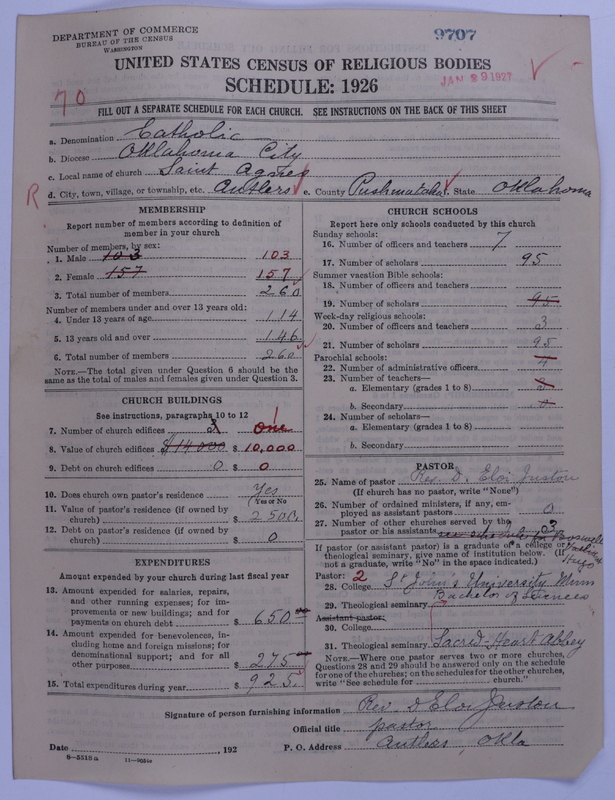 DEPARTMENT OF COMMERCE
BUREAU OF THE CENSUS
WASHINGTON
9707
UNITED STATES CENSUS OF RELIGIOUS BODIES
SCHEDULE: 1926
JAN 29 1927
70
FILL OUT A SEPARATE SCHEDULE FOR EACH CHURCH. SEE INSTRUCTIONS ON THE BACK OF THIS SHEET
a. Denomination Catholic
b. Diocese Oklahoma City
c. Local name of church Saint Agnes
R
d. City, town, village, or township, etc. Antlers e. County Pushmataha f. State Oklahoma
MEMBERSHIP
Report number of members according to definition of member in your church
Number of members, by sex:
1. Male 103 103
2. Female 157 157
3. Total number of members 260
Number of members under and over 13 years old:
4. Under 13 years of age 114
5. 13 years old and over 146
6. Total number of members 260
NOTE.—The total given under Question 6 should be the same as the total of males and females given under Question 3.
CHURCH BUILDINGS
See instructions, paragraphs 10 to 12
7. Number of church edifices 1
8. Value of church edifices $14,000 $ 10,000
9. Debt on church edifices 0 $ 0
10. Does church own pastor's residence Yes
(Yes or No)
11. Value of pastor's residence (if owned by church) $ 2500
12. Debt on pastor's residence (if owned by church) $ 0
EXPENDITURES
Amount expended by your church during last fiscal year
13. Amount expended for salaries, repairs, and other running expenses; for improvements or new buildings; and for payments on church debt $ 650
14. Amount expended for benevolences, including home and foreign missions; for denominational support; and for all other purposes $ 275
15. Total expenditures during year $ 925
CHURCH SCHOOLS
Report here only schools conducted by this church
Sunday schools:
16. Number of officers and teachers 7
17. Number of scholars 95
Summer vacation Bible schools:
18. Number of officers and teachers
19. Number of scholars 95
Week-day religious schools:
20. Number of officers and teachers 3
21. Number of scholars 95
Parochial schools:
22. Number of administrative officers
23. Number of teachers—
a. Elementary (grades 1 to 8)
b. Secondary
24. Number of scholars—
a. Elementary (grades 1 to 8)
b. Secondary
PASTOR
25. Name of pastor Rev. D. Eloi
(If church has no pastor, write "None")
26. Number of ordained ministers, if any, employed as assistant pastors 0
27. Number of other churches served by the pastor or his assistants 03
If pastor (or assistant pastor) is a graduate of a college or theological seminary, give name of institution below. (If not a graduate, write "No" in the space indicated.)
Pastor: 2
28. College St John's University Minn
Bachelor of Sciences
29. Theological seminary
Assistant pastor:
30. College
31. Theological seminary Sacred Heart Abbey
NOTE.—Where one pastor serves two or more churches, Questions 28 and 29 should be answered only on the schedule for one of the churches; on the schedules for the other churches, write "See schedule for church."
Signature of person furnishing information Rev. D Eloi
Official title pastor
Date , 192 P. O. Address Antlers, Okla
8—5518a 11—9051a